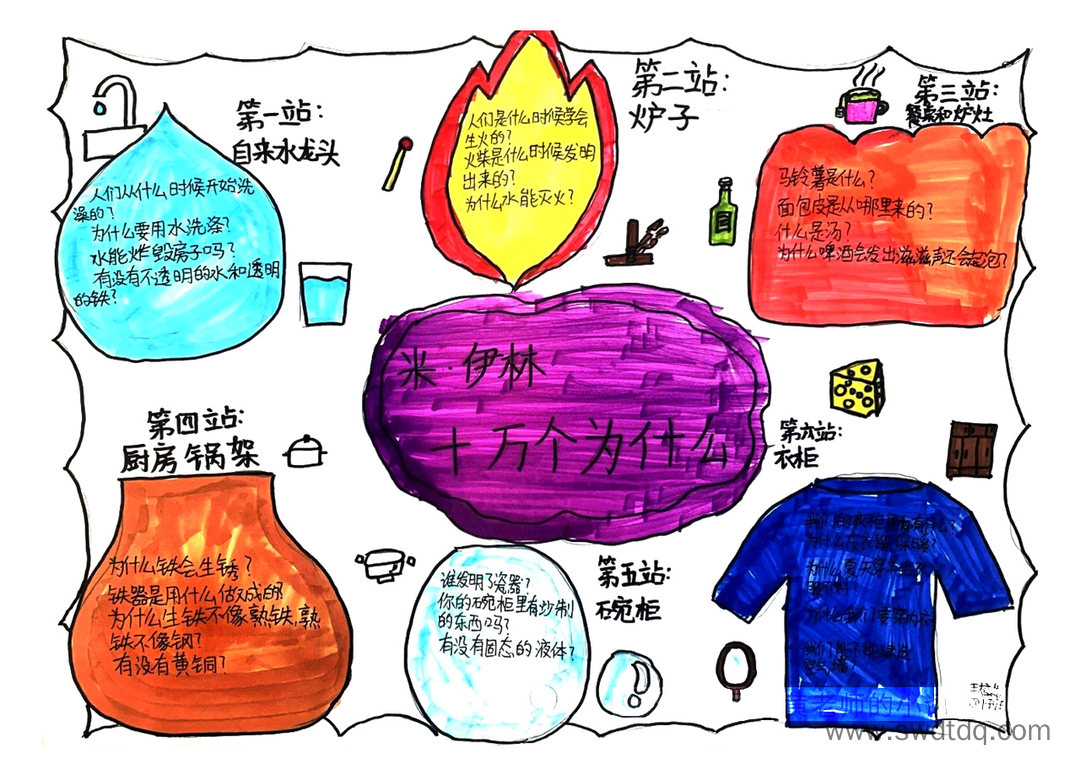 第一站：
自来水龙头
人们从什么时候开始洗
澡的？
为什么要用水洗涤？
水能炸毁房子吗？
有没有不透明的水和透明
的铁？
第二站：
炉子
人们是什么时候学会
生火的？
火柴是什么时候发明
出来的？
为什么水能灭火？
第三站：
餐桌和炉灶
马铃薯是什么？
面包皮是从哪里来的？
什么是汤？
为什么啤酒会发出滋滋声还会起泡？
米·伊林
十万个为什么
第四站：
厨房锅架
为什么铁会生锈？
铁器是用什么做成的
为什么生铁不像熟铁，熟
铁不像钢？
有没有黄铜？
第五站：
碗柜
谁发明了瓷器？
你的碗柜里有沙制
的东西吗？
有没有固态的液体？
第六站：
衣柜
我们的衣柜里有什么？
为什么
为什么夏天穿
老师的小
www.swdtdq.com